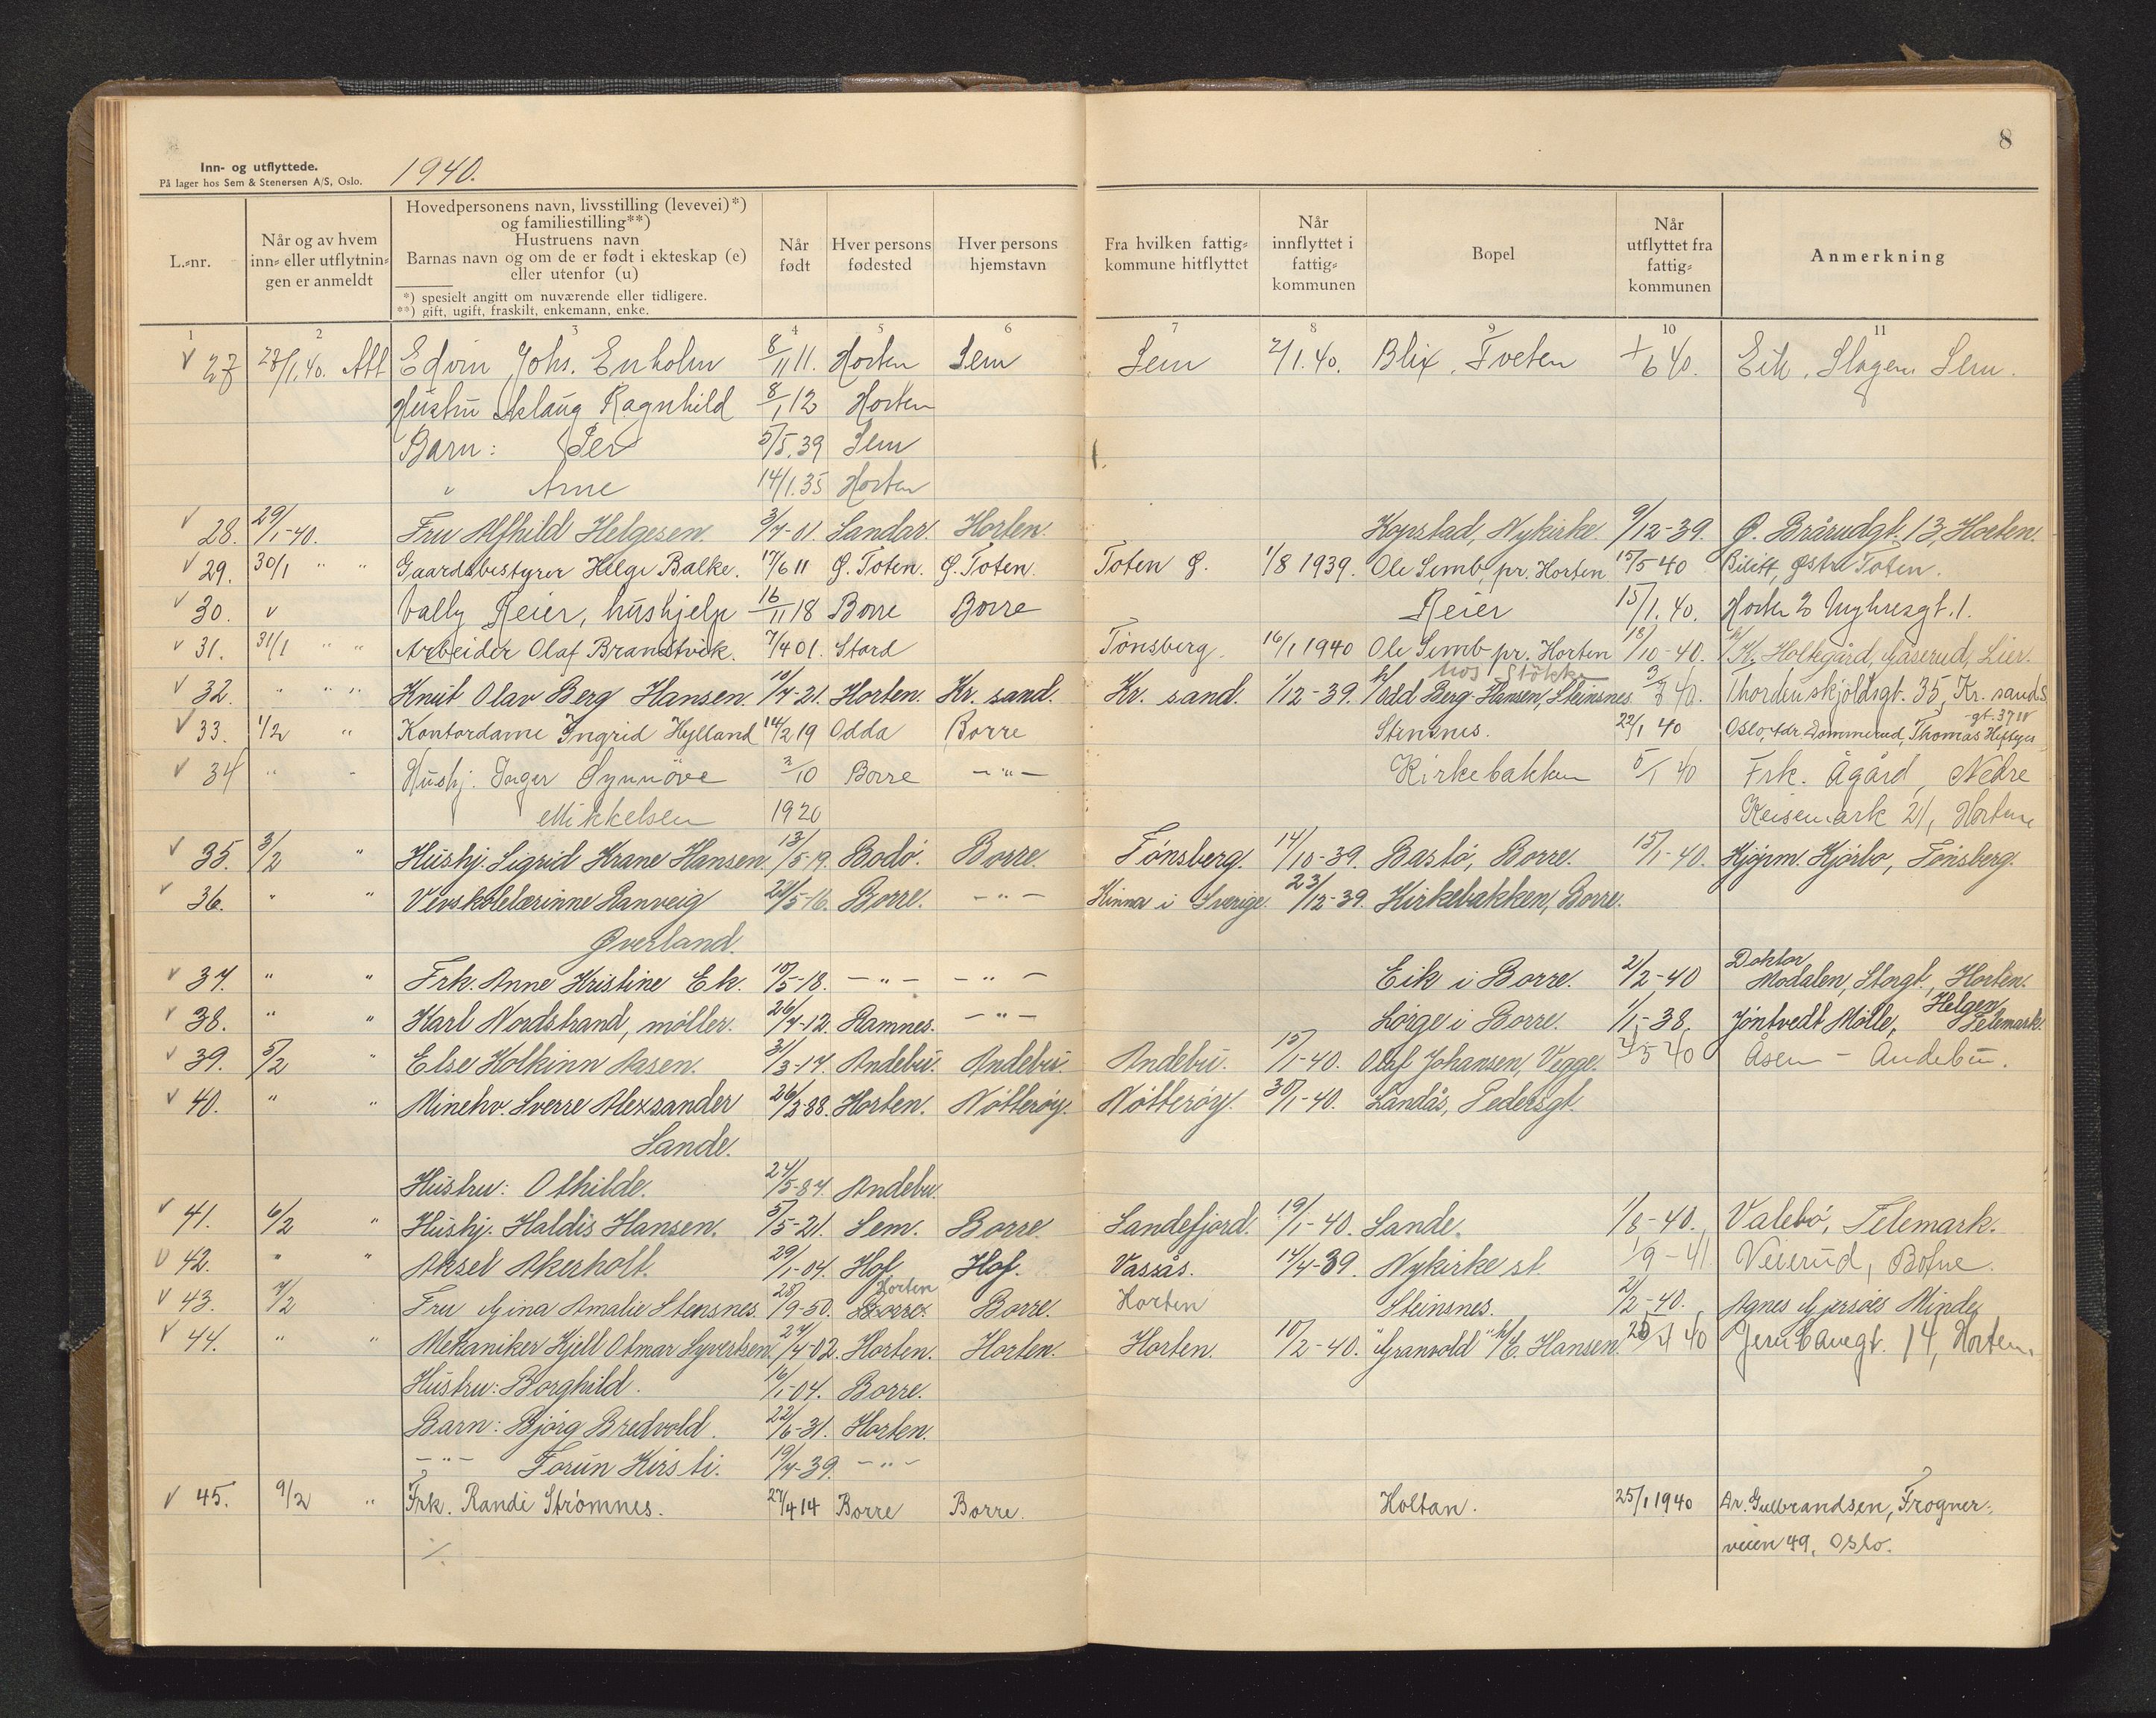 8
Inn- og utflyttede.
På lager hos Sem & Stenersen A/S, Oslo.
1940.
L.-nr.
Når og av hvem inn- eller utflytnin-gen er anmeldt
Hovedpersonens navn, livsstilling (levevei)*) og familiestilling**)
Hustruens navn
Barnas navn og om de er født i ekteskap (e) eller utenfor (u)
*) spesielt angitt om nuværende eller tidligere.
**) gift, ugift, fraskilt, enkemann, enke.
Når født
Hver persons fødested
Hver persons hjemstavn
Fra hvilken fattig-kommune hitflyttet
Når innflyttet i fattig-kommunen
Bopel
Når utflyttet fra fattig-kommunen
Anmerkning
1 2 3 4 5 6 7 8 9 10 11
27 Edvin Johs. Enholm 8/11 11. Horten Sem Sem 2/1.40. Blix, Tveten 6 40. Eik, Slagen Sem.
Hustru Aslaug Ragnhild 8/1 12 Horten
Barn: Per 5/5.39 Sem
" Arne 14/1.35 Horten
28. 29/1-40. Fru Alfhild Helgesen. 3/7-01. Sandar. Horten. Kopstad, Nykirke. 9/12-39. Ø. Brårudgt. 13, Horten.
29. 30/1 " " Gaardsbestyrer Helge Balke. 17/6 11 Ø. Toten. Ø. Toten. Toten Ø. 1/8 1939. Ole Semb, pr. Horten 15/5-40 Bilitt, Østre Toten.
30. Vally Reier, hushjelp 16/11 18 Borre Borre Reier 15/1.40. Horten
31. 31/1 " " Arbeider Olaf Brandtvik. 7/4 01. Stord Tønsberg. 16/1 1940 Ole Semb pr. Horten 18/10-40. Holtegård, Gaserud, Lier.
32. " " " Knut Olav Berg Hansen. 10/7-21. Horten. Kr. sand. Kr. sand. 1/12-39. hos Støkke Odd Berg-Hansen, Steinsnes. 40. Thordenskjoldsgt. 35, Kr. sands
33. 1/2 " Kontordame Ingrid Hylland 14/2 19 Odda Borre Stensnes. 22/1 40 Oslo, adr Dommerud, Thomas Heftyes gt. 37 IV
34 " " Hushj. Inger Synnøve 2/10 Borre — " — Kirkebakken 5/1 40 Frk. Ågård, Nedre
Mikkelsen 1920 Keisemark 21, Horten
35. 3/2 " Hushj. Sigrid Krane Hansen. 13/5-19. Bodø. Borre. Tønsberg. 14/10-39. Bastø, Borre. 15/1-40. Kjøpm. Kjørbo, Tønsberg.
36. " " Vevskolelærinne Ranveig 24/5-16. Borre. — " — Kinna i Sverige. 23/12-39. Kirkebakken, Borre.
Øverland.
37. " " Frk. Anne Kristine Ek. 10/5-18. — " — — " — Eik i Borre. 2/2-40 Doktor Modalen, Storgt., Horten.
38. " " Karl Nordstrand, møller. 26/7-12. Ramnes. — " — Lørge i Borre. 1/1-38. Jøntvedt Mølle, Helgen Telemark.
39. 5/2 " Else Kolkinn Aasen. 31/3-17. Andebu. Andebu. Andebu. 15/1-40. Olaf Johansen, Vegge. 5 40 Åsen - Andebu.
40. " " Minehv. Sverre Alexsander 26/3-88. Horten. Nøtterøy. Nøtterøy. 30/1-40. Landås, Pedersgt.
Sande.
Hustru: Othilde. 24/5-87. Andebu
41. 6/2 " Hushj. Haldis Hansen. 5/5-21. Sem. Borre. Sandefjord. 19/1-40. Sande. 1/8-40. Valebø, Telemark.
42. " " Aksel Akerholt. 29/1-04. Hof Hof. Vassås. 14/4-39. Nykirke st. 1/9-41. Veierud, Botne.
43. 7/2 Fru Gina Amalie Stensnes. 28/9-50. Borre Horten Borre. Horten Steinsnes. 2/2-40. Agnes Gjersøes Minde
44. " " Mekaniker Kjell Otmar Syvertsen. 27/4-02. Horten. Horten. Horten. 10/2-40. "Granvold" h/E. Hansen. 40 14, Horten.
Hustru: Borghild. 16/1-04. Borre.
Barn: Bjørg Bredvold. 22/6-31. Horten.
— " — Torun Kirsti. 19/7-39. — " —
45. 9/2 " Frk. Randi Strømnes. 27/4 14 Borre Borre. Holtan. 25/1 1940 Ar. Gulbrandsen, Frogner-
veien 49, Oslo.